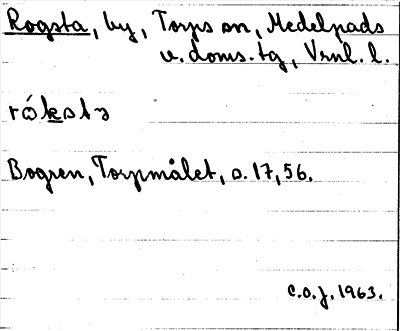 Rogsta, by, Torps sn, Medelpads
v. doms. tg, Vrnl. l.
rókstə
Bogren, Torpmålet, s. 17, 56.
C.O.J. 1963.